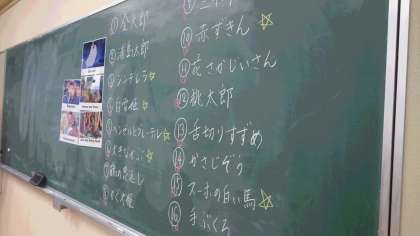 ① 金太郎
② 浦島太郎
③ シンデレラ☆
④ 白雪姫
⑤ ヘンゼルとグレーテル☆
⑥ 大きなかぶ☆
⑦ 鶴の恩返し
⑧ かぐや姫
⑩ 赤ずきん ☆
⑪ 花さかじいさん
⑫ 桃太郎
⑬ 舌切りすずめ
⑭ かさじぞう
⑮ スーホの白い馬☆
⑯ 手ぶくろ